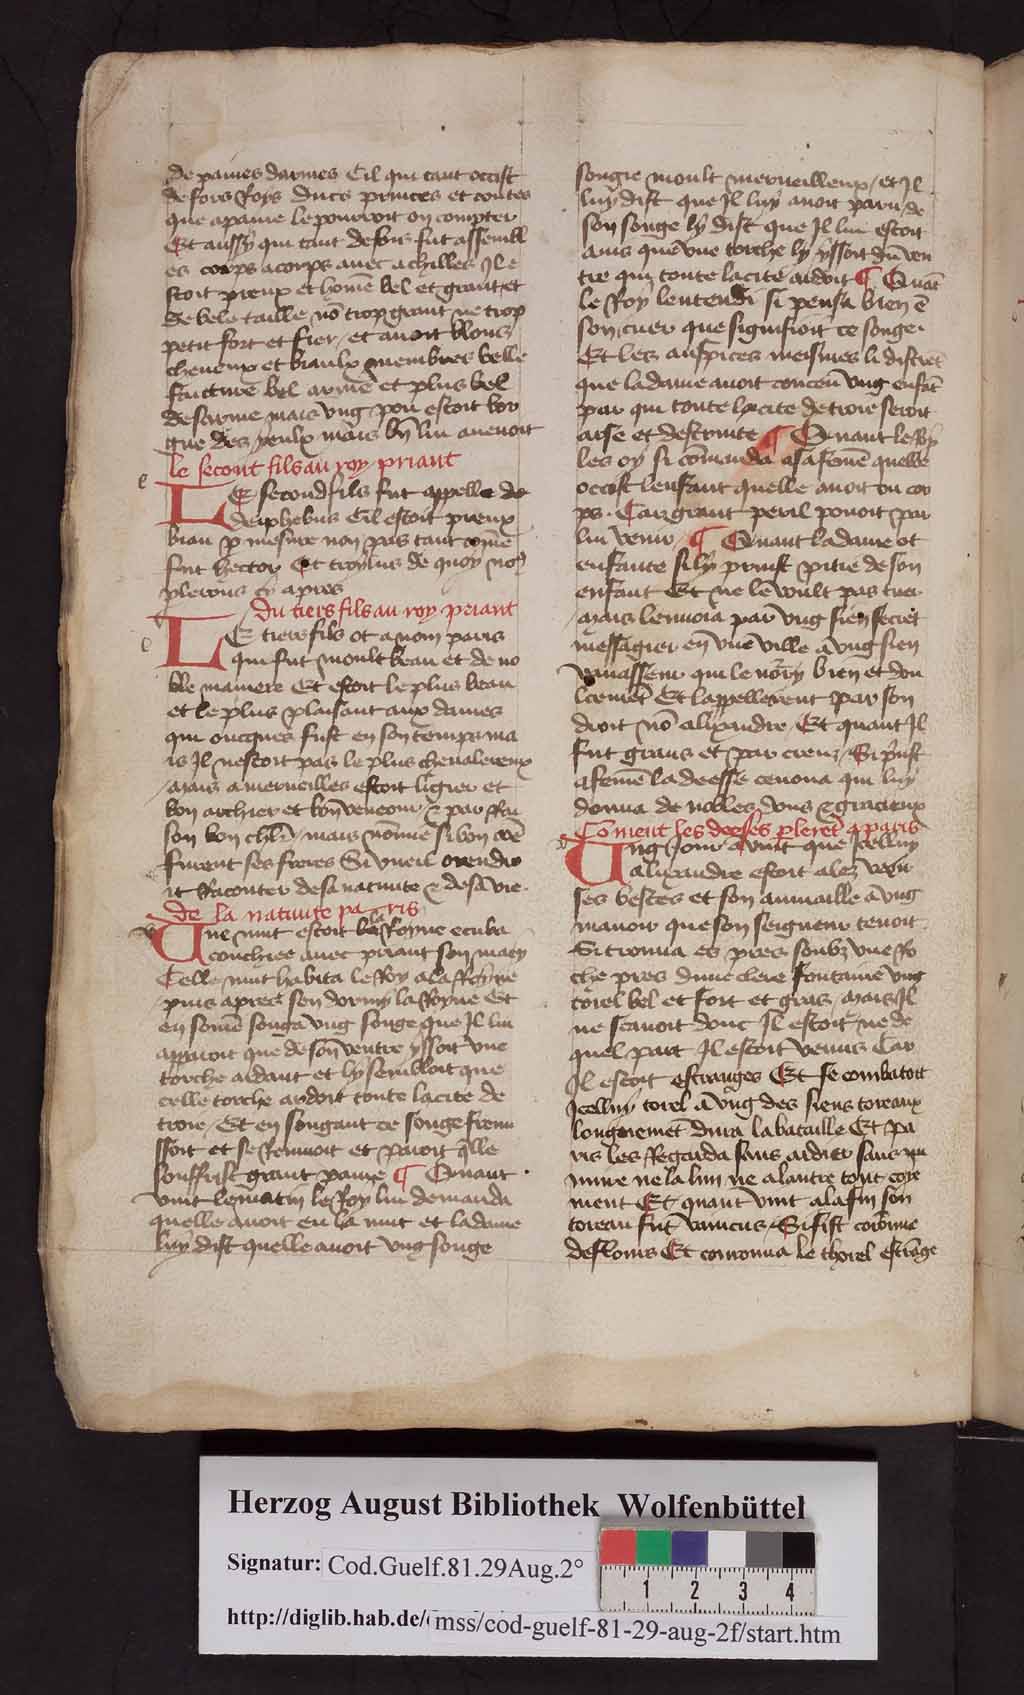 de paines darmes Cil qui tant occist
de fors Roys ducs princes et contes
que apaine le pourroit on compter
Et aussy qui tant de fois fut assembl
es corps acorps auec achilles Il e
stoit preux et hõme bel et grant et
de bele taille nõ trop grant ne trop
petit fort et fier / et auoit blons
cheueux et biaulx membres belle
stucture bel arme et plus bel
desarme mais vng pou estoit bor
gne des yeulx mais bñ lui auenoit
le second fils au roy priant
e
LE second fils fut appelle de
deiphebus Cil estoit preux
biau p mesure non pas tant cõme
fut hector Et troylus de quoy no9
plerons cy apres
Du tiers fils au roy priant
e
LE tiers fils ot a nom paris
qui fut moult beau et de no
ble maniere Et estoit le plus beau
et le plus plaisant aux dames
qui oucques fust en son temps ma
is Il nestoit pas le plus cheualereux
mais a merueilles estoit ligier et
bon archier et bon veneour & par Rai
son bon chlr / mais nõmie si bon cõe
furent ses freres Si vueil orendro
it Raconter de sa natiuite & de sa vie.
De la natiuite paris
v
Une nuit estoit la Royne ecuba
couchiee auec priant son mary
Celle nuit habita le Roy a la Royne
puis apres sen dormy la Royne Et
en somẽ songa vng songe que Il lui
apparoit que de son ventre yssoit vne
torche ardant et ly sembloit que
celle torche ardoit toute la cite de
troie / Et en songant ce songe fremi
ssoit et se Remuoit et paroit qlle
souffrist grant paine ¶ Quant
vint le matin le Roy lui demanda
quelle auoit eu la nuit et la dame
luy dist quelle auoit vng songe
songie moult merueilleux / et Il
luy dist que Il luy auoit paru / de
son songe ly dist que Il lui estoit
auis que vne torche ly yssoit du ven
tre qui toute la cite ardoit ¶ Quãt
le Roy lentendi si pensa bien ẽ
son cuer que signifioit ce songe.
Et les auspices meismes li distrẽt
que la dame auoit conceu vng enfãt
par qui toute la cite de troie seroit
arse et destruite ¶ Quant le Roy
les oy si cõmanda a sa femẽ quelle
occist lenfant quelle auoit ou cor
ps. Car grant peril pouoit par
lui venir ¶ Quant la dame ot
enfante si ly prinst pitie de son
enfant Et ne le voult pas tuer
mais lenuoia par vng sien secret
messagier en vne ville a vng sien
vauasseur qui le nõry bien et dou
lcemẽt Et lappellerent par son
droit nõ alixandre / Et quant Il
fut grans et par creuz / Si pnst
a femẽ la deesse cenona qui luy
donna de nobles dons & gracieux
Coment les deeses plerẽt a paris
v
Ung Jour auint que Jcelluy
alixandre estoit alez veoir
ses bestes et son aumaille a vng
manoir que son seigneur tenoit
Si trouua es pres soubz vne Ro
che pres dune clere fontaine vng
torel bel et fort et gras / mais Il
ne scauoit donc Il estoit ne de
quel part Il estoit venus Car
Il estoit estranges Et se combatoit
Jcelluy torel a vng des siens toreaux
longuemẽt dura la bataille Et pa
ris les Regarda sans aidier sans nu
nuire ne la lun ne a lautre tout coye
ment Et quant vint a la fin son
toreau fut vaincus / Si fist coronne
de flours Et couronna le thorel estrãge
Herzog August Bibliothek Wolfenbüttel
Signatur: Cod.Guelf.81.29Aug.2°
http://diglib.hab.de/mss/cod-guelf-81-29-aug-2f/start.htm
1 2 3 4